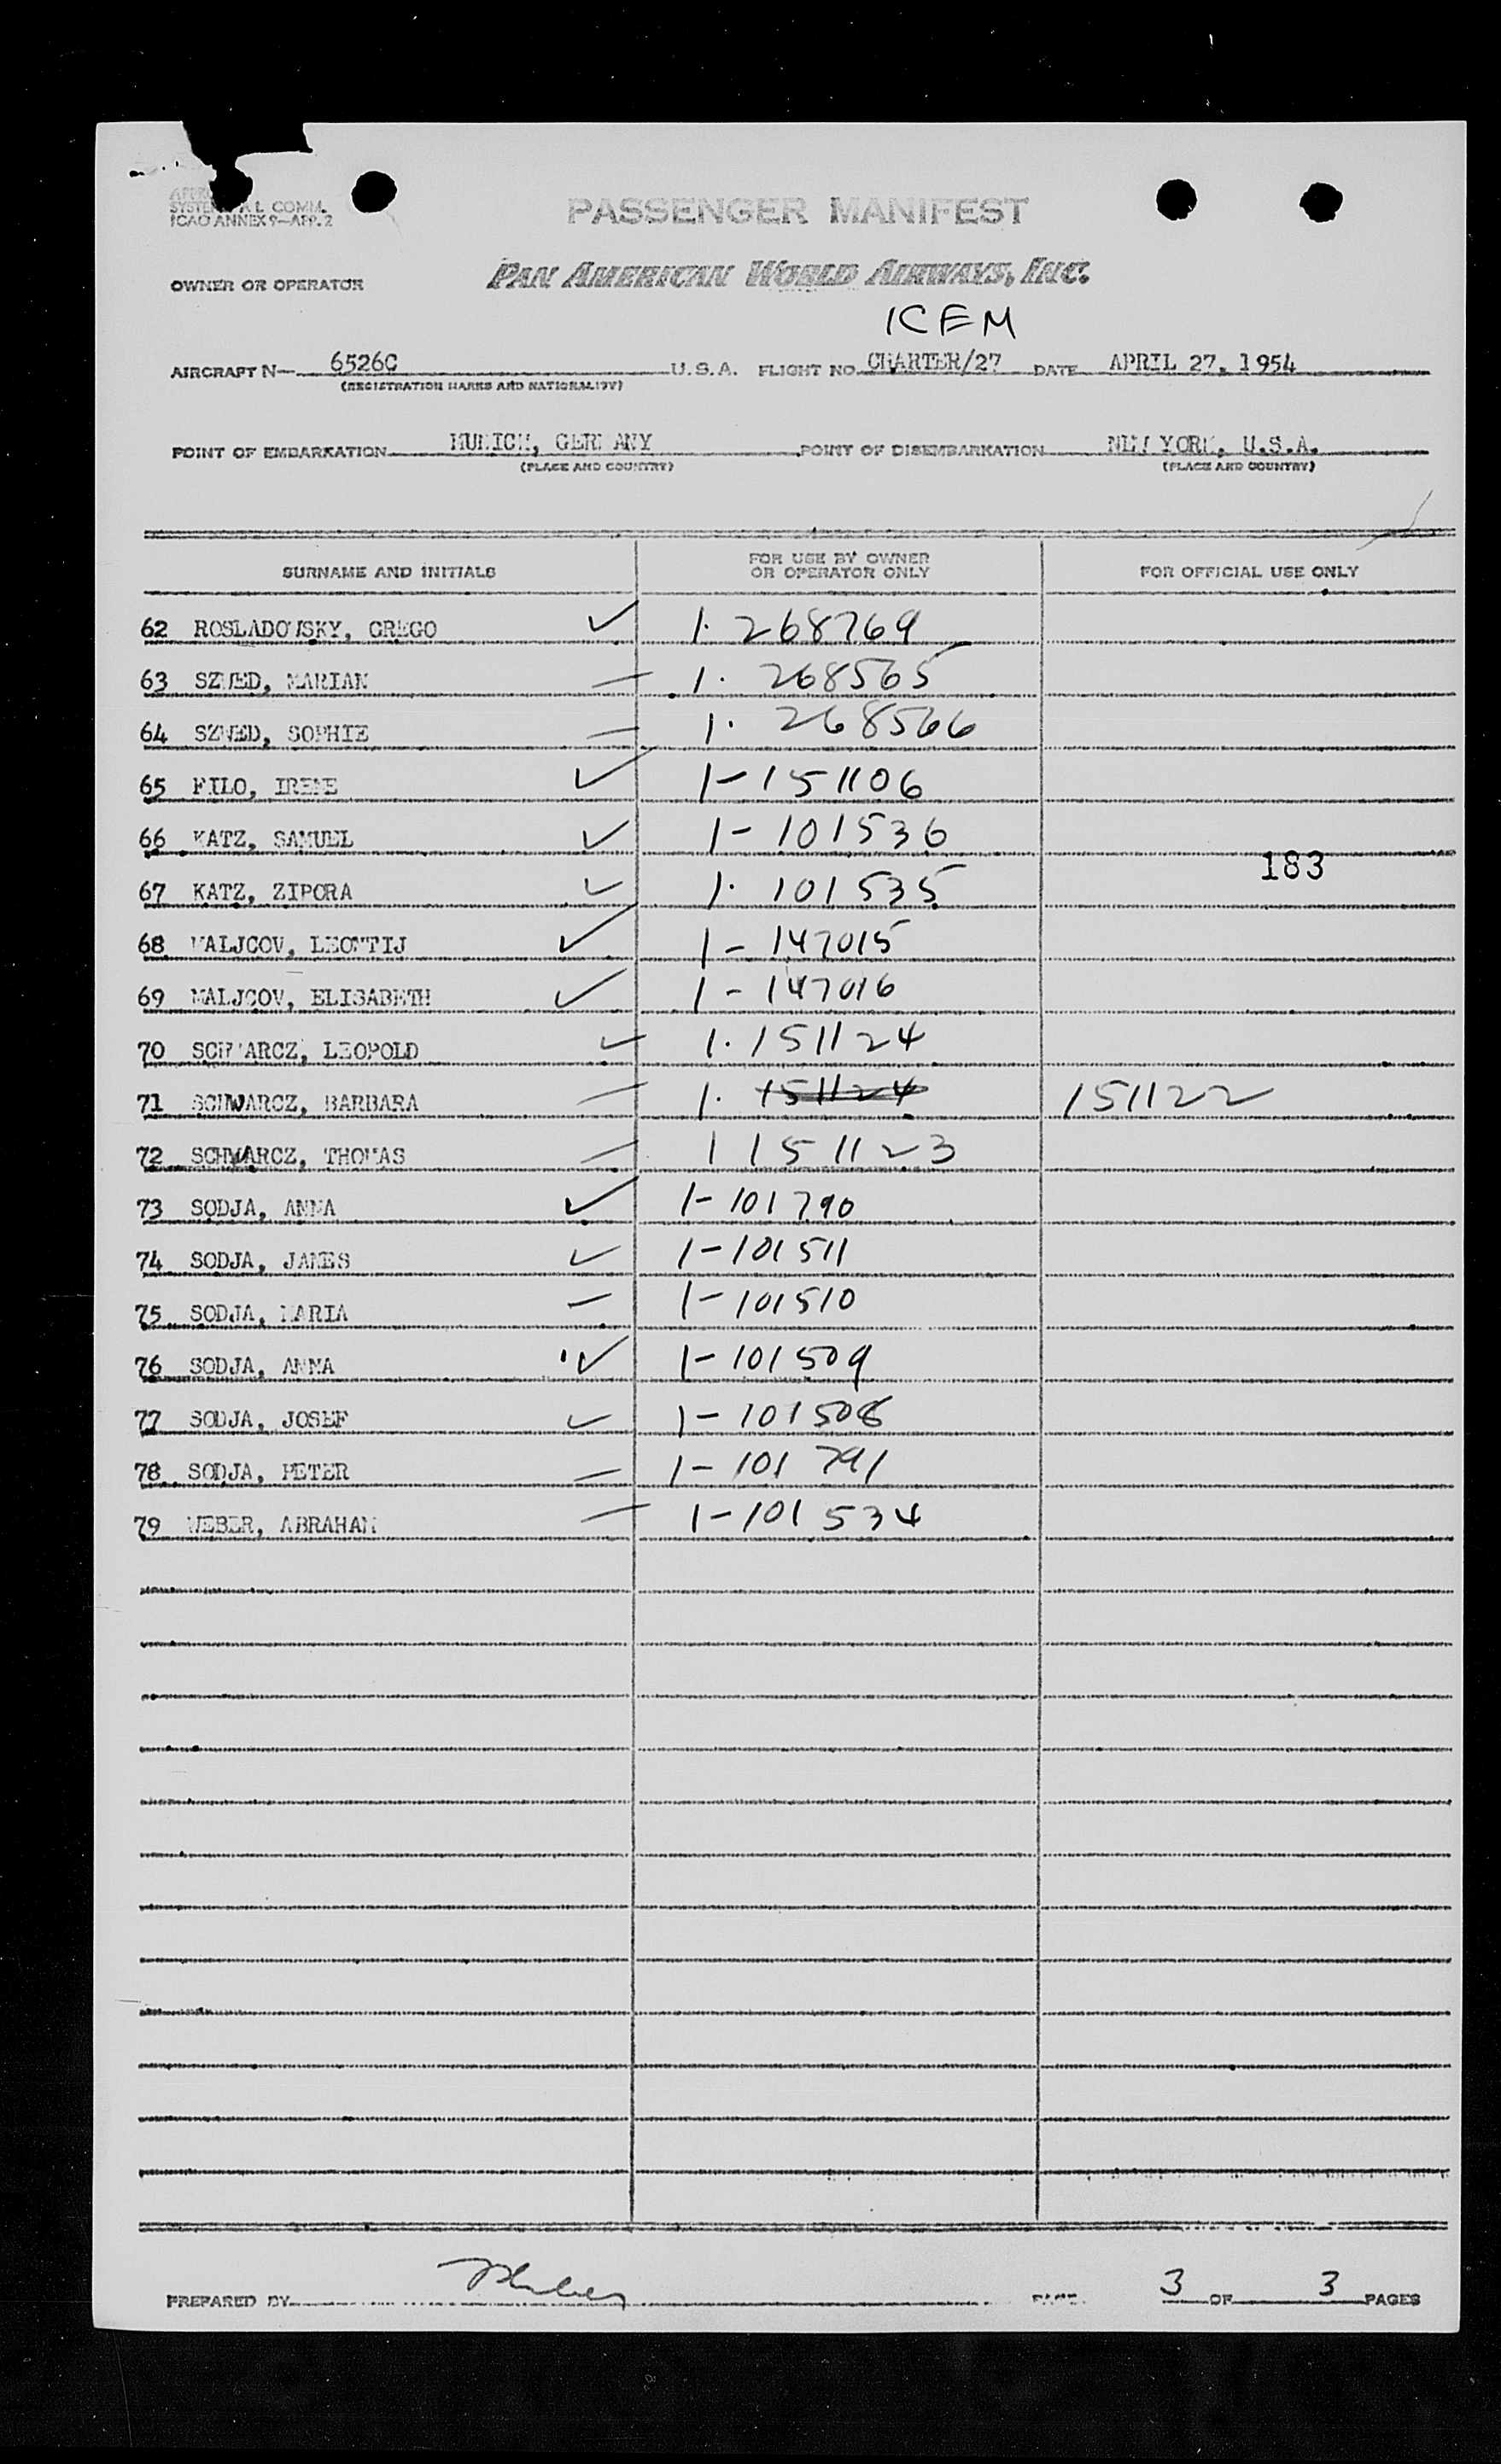 SYSTE L COMM.
ICAO ANNEX 9—APP. 2
PASSENGER MANIFEST
OWNER OR OPERATOR PAN AMERICAN WORLD AIRWAYS, INC.
ICEM
AIRCRAFT N— 6526C U.S.A. FLIGHT NO. CHARTER/27 DATE APRIL 27, 1954
(REGISTRATION MARKS AND NATIONALITY)
POINT OF EMBARKATION MUNICH, GERMANY POINT OF DISEMBARKATION NEW YORK, U.S.A.
(PLACE AND COUNTRY) (PLACE AND COUNTRY)
SURNAME AND INITIALS FOR USE BY OWNER OR OPERATOR ONLY FOR OFFICIAL USE ONLY
62 ROSLADOWSKY, GREGO ✓ 1. 268769
63 SZWED, MARIAN — 1. 268565
64 SZWED, SOPHIE — 1. 268566
65 FILO, IRENE ✓ 1-151106
66 KATZ, SAMUEL ✓ 1-101536
183
67 KATZ, ZIPORA ✓ 1. 101535
68 MALJCOV, LEONTIJ ✓ 1-147015
69 MALJCOV, ELISABETH ✓ 1-147016
70 SCHWARCZ, LEOPOLD ✓ 1. 151124
71 SCHWARCZ, BARBARA — 1. 151124 151122
72 SCHWARCZ, THOMAS — 1 151123
73 SODJA, ANNA ✓ 1-101790
74 SODJA, JAMES ✓ 1-101511
75 SODJA, MARIA — 1-101510
76 SODJA, ANNA ✓ 1-101509
77 SODJA, JOSEF ✓ 1-101508
78 SODJA, PETER — 1-101791
79 WEBER, ABRAHAM — 1-101534
PREPARED BY PAGE 3 OF 3 PAGES